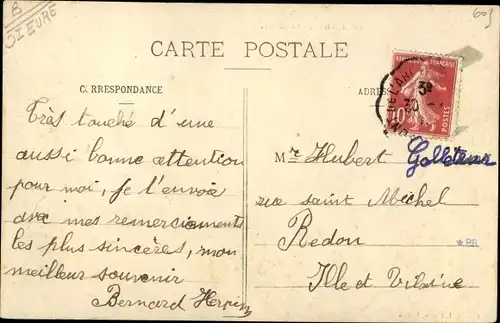 B
5 EURE
603
CARTE POSTALE
C. RRESPONDANCE
ADRES
RÉPUBLIQUE FRANÇAISE
10
POSTES
30
Très touché d'une
aussi bonne attention
pour moi, je t'envoie
avec mes remerciements
les plus sincères, mon
meilleur souvenir
Bernard
Mr Hubert
rue saint Michel
Redon
* BB
Ille et Vilaine